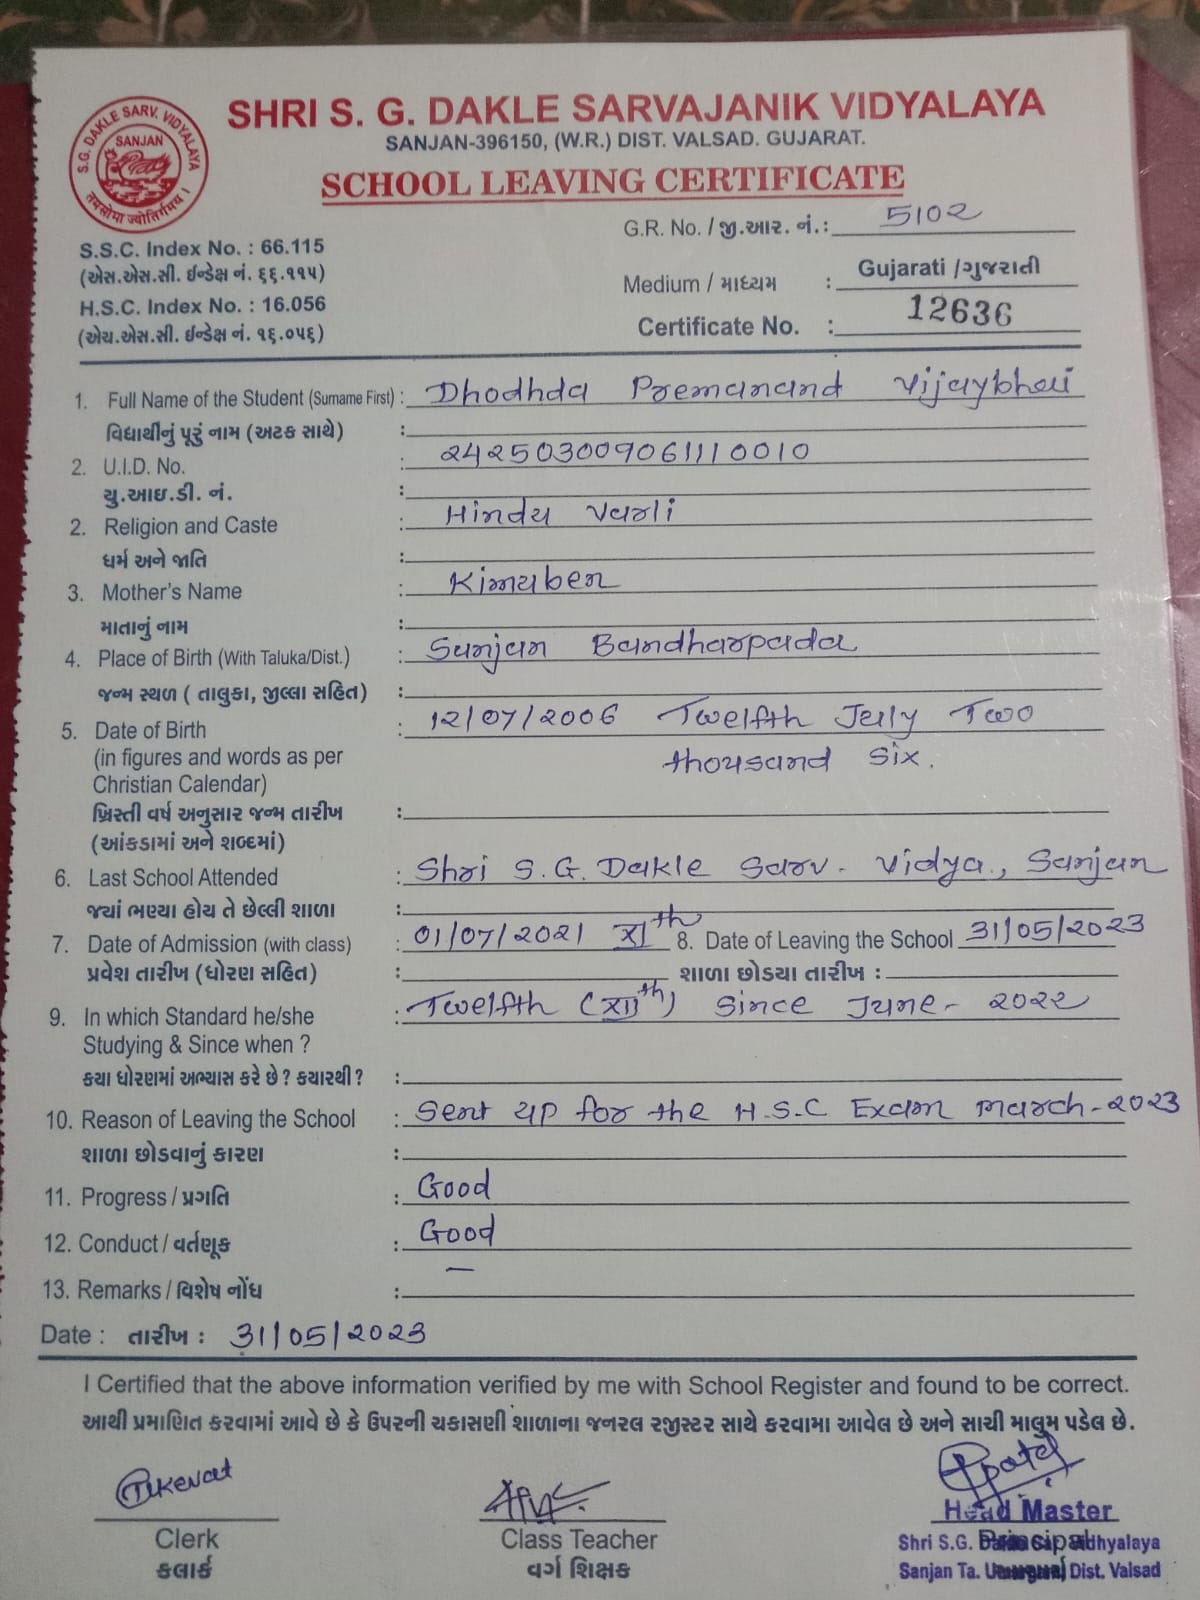 SHRI S. G. DAKLE SARVAJANIK VIDYALAYA
SANJAN-396150, (W.R.) DIST. VALSAD. GUJARAT.
SCHOOL LEAVING CERTIFICATE
S.G. DAKLE SARV. VIDYALAYA
SANJAN
તમસોમા જ્યોતિર્ગમય
G.R. No. / જી.આર. નં. : 5102
S.S.C. Index No. : 66.115
(એસ.એસ.સી. ઈન્ડેક્ષ નં. ૬૬.૧૧૫)
Medium / માધ્યમ : Gujarati / ગુજરાતી
H.S.C. Index No. : 16.056
(એચ.એસ.સી. ઈન્ડેક્ષ નં. ૧૬.૦૫૬)
Certificate No. : 12636
1. Full Name of the Student (Surname First) : Dhodhda Premanand Vijaybhai
વિદ્યાર્થીનું પૂરું નામ (અટક સાથે) :
2. U.I.D. No. : 242503009061110010
યુ.આઇ.ડી. નં. :
2. Religion and Caste : Hindu Varli
ધર્મ અને જાતિ :
3. Mother's Name : Kimuben
માતાનું નામ :
4. Place of Birth (With Taluka/Dist.) : Sanjan Bandharpada
જન્મ સ્થળ ( તાલુકા, જીલ્લા સહિત) :
5. Date of Birth : 12/07/2006 Twelfth July Two
(in figures and words as per thousand six.
Christian Calendar)
ખ્રિસ્તી વર્ષ અનુસાર જન્મ તારીખ :
(આંકડામાં અને શબ્દમાં)
6. Last School Attended : Shri S.G. Dakle Sarv. Vidya., Sanjan
જ્યાં ભણ્યા હોય તે છેલ્લી શાળા :
7. Date of Admission (with class) : 01/07/2021 XIth 8. Date of Leaving the School 31/05/2023
પ્રવેશ તારીખ (ધોરણ સહિત) : શાળા છોડયા તારીખ :
9. In which Standard he/she : Twelfth (XIIth) Since June-2022
Studying & Since when ?
કયા ધોરણમાં અભ્યાસ કરે છે? કયારથી? :
10. Reason of Leaving the School : Sent up for the H.S.C Exam March-2023
શાળા છોડવાનું કારણ :
11. Progress / પ્રગતિ : Good
12. Conduct / વર્તણૂક : Good
13. Remarks / વિશેષ નોંધ : —
Date : તારીખ : 31/05/2023
I Certified that the above information verified by me with School Register and found to be correct.
આથી પ્રમાણિત કરવામાં આવે છે કે ઉપરની ચકાસણી શાળાના જનરલ રજીસ્ટર સાથે કરવામા આવેલ છે અને સાચી માલુમ પડેલ છે.
Clerk
કલાર્ક
Class Teacher
વર્ગ શિક્ષક
Head Master
Principal
Shri S.G.
Sanjan Ta. Dist. Valsad